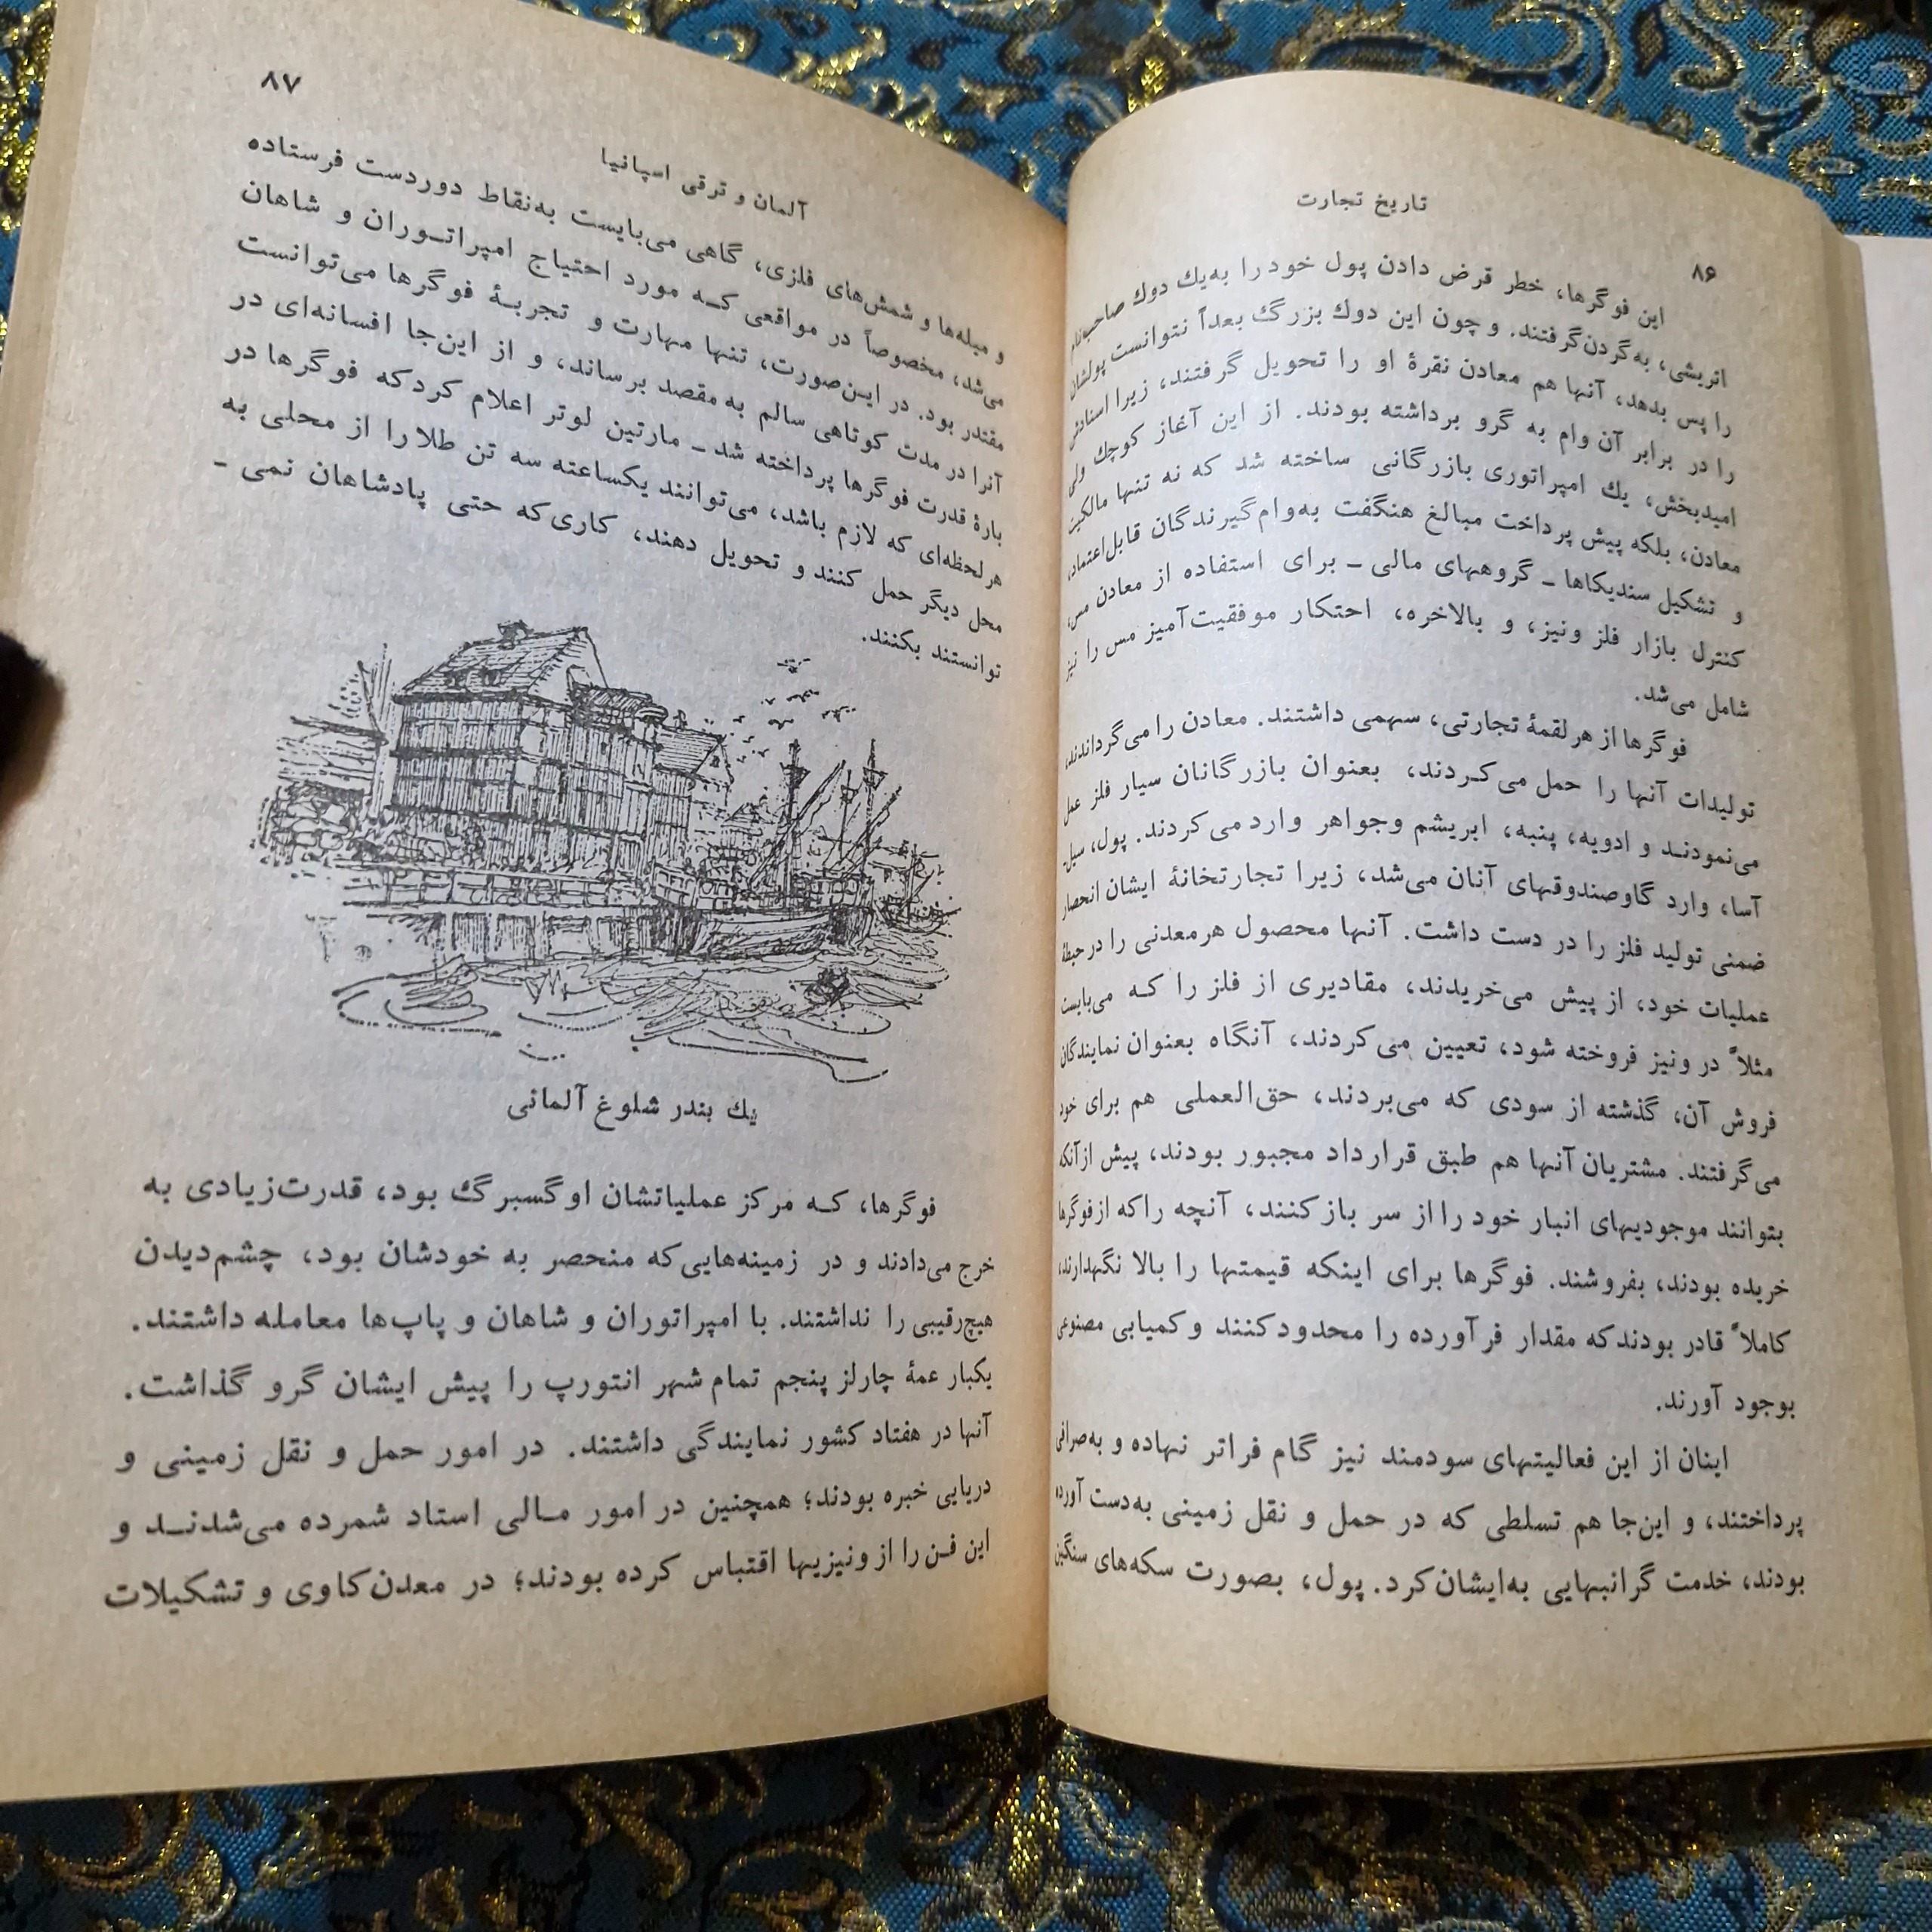 ۸۶
تاریخ تجارت
این فوگرها، خطر قرض دادن پول خود را به‌یك دوك صاحب‌نام
اتریشی، به‌گردن‌گرفتند. و چون این دوك بزرگ بعداً نتوانست پولشان
را پس بدهد، آنها هم معادن نقرهٔ او را تحویل گرفتند، زیرا اسنادش
را در برابر آن وام به گرو برداشته بودند. از این آغاز كوچك ولی
امیدبخش، یك امپراتوری بازرگانی ساخته شد كه نه تنها مالكیت
معادن، بلكه پیش پرداخت مبالغ هنگفت به‌وام‌گیرندگان قابل‌اعتماد،
و تشكیل سندیكاها ـ گروههای مالی ـ برای استفاده از معادن مس،
كنترل بازار فلز ونیز، و بالاخره، احتكار موفقیت‌آمیز مس را نیز
شامل می‌شد.
فوگرها از هرلقمهٔ تجارتی، سهمی داشتند. معادن را می‌گرداندند،
تولیدات آنها را حمل می‌كردند، بعنوان بازرگانان سیار فلز عمل
می‌نمودند و ادویه، پنبه، ابریشم وجواهر وارد می‌كردند. پول، سیل‌ـ
آسا، وارد گاوصندوقهای آنان می‌شد، زیرا تجارتخانهٔ ایشان انحصار
ضمنی تولید فلز را در دست داشت. آنها محصول هرمعدنی را درحیطهٔ
عملیات خود، از پیش می‌خریدند، مقادیری از فلز را كه می‌بایست
مثلاً در ونیز فروخته شود، تعیین می‌كردند، آنگاه بعنوان نمایندگان
فروش آن، گذشته از سودی كه می‌بردند، حق‌العملی هم برای خود
می‌گرفتند. مشتریان آنها هم طبق قرارداد مجبور بودند، پیش ازآنكه
بتوانند موجودیهای انبار خود را از سر باز كنند، آنچه راكه ازفوگرها
خریده بودند، بفروشند. فوگرها برای اینكه قیمتها را بالا نگهدارند،
كاملاً قادر بودندكه مقدار فرآورده را محدودكنند وكمیابی مصنوعی
بوجود آورند.
اینان از این فعالیتهای سودمند نیز گام فراتر نهاده و به‌صرافی
پرداختند، و این‌جا هم تسلطی كه در حمل و نقل زمینی به‌دست آورده
بودند، خدمت گرانبهایی به‌ایشان‌كرد. پول، بصورت سكه‌های سنگین
۸۷
آلمان و ترقی اسپانیا
و میله‌ها و شمش‌های فلزی، گاهی می‌بایست به‌نقاط دوردست فرستاده
می‌شد، مخصوصاً در مواقعی كه مورد احتیاج امپراتوران و شاهان
مقتدر بود. در این‌صورت، تنها مهارت و تجربهٔ فوگرها می‌توانست
آنرا در مدت كوتاهی سالم به مقصد برساند، و از این‌جا افسانه‌ای در
بارهٔ قدرت فوگرها پرداخته شد ـ مارتین لوتر اعلام كردكه فوگرها در
هرلحظه‌ای كه لازم باشد، می‌توانند یكساعته سه تن طلارا از محلی به
محل دیگر حمل كنند و تحویل دهند، كاری‌كه حتی پادشاهان نمی ـ
توانستند بكنند.
یك بندر شلوغ آلمانی
فوگرها، كه مركز عملیاتشان اوگسبرگ بود، قدرت‌زیادی به
خرج می‌دادند و در زمینه‌هایی‌كه منحصر به خودشان بود، چشم‌دیدن
هیچ‌رقیبی را نداشتند. با امپراتوران و شاهان و پاپ‌ها معامله داشتند.
یكبار عمهٔ چارلز پنجم تمام شهر انتورپ را پیش ایشان گرو گذاشت.
آنها در هفتاد كشور نمایندگی داشتند. در امور حمل و نقل زمینی و
دریایی خبره بودند؛ همچنین در امور مالی استاد شمرده می‌شدند و
این فن را از ونیزیها اقتباس كرده بودند؛ در معدن‌كاوی و تشكیلات